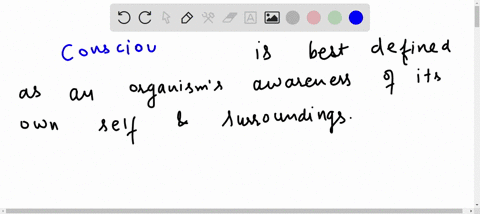 Consciou is best defined
as an organism's awareness of its
own self & surroundings.